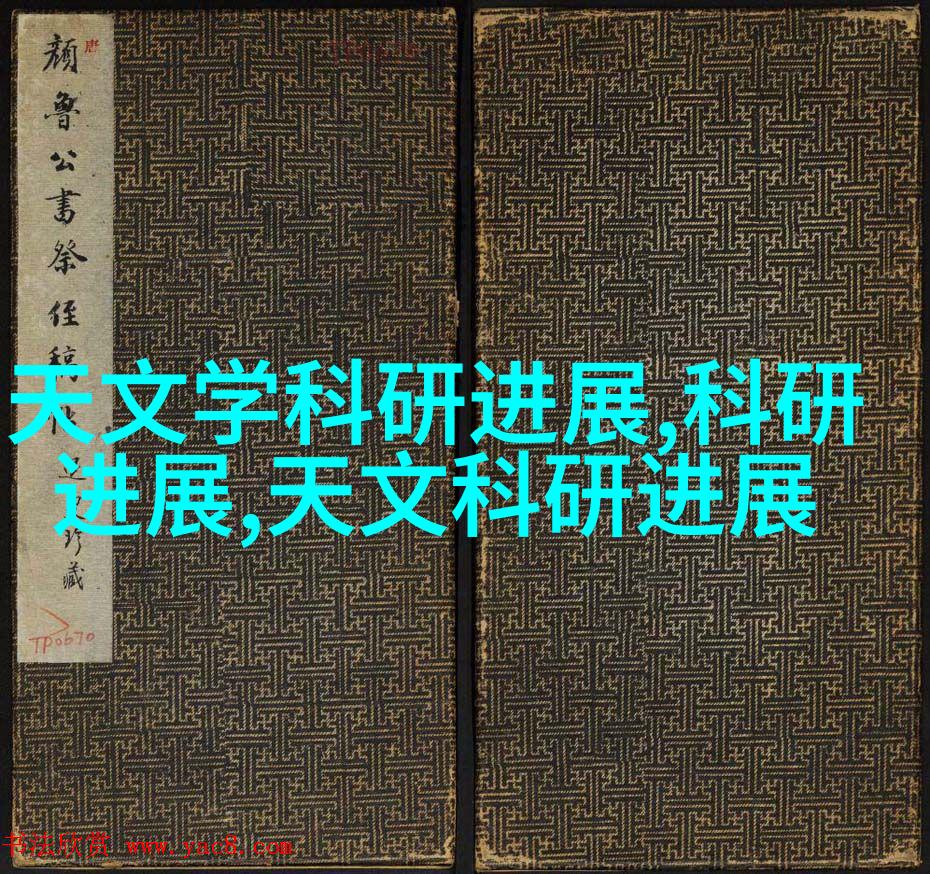 唐
颜鲁公书祭侄稿
珍藏
TP0670
天文学科研进展,科研
进展,天文科研进展
书法欣赏 www.yac8.com